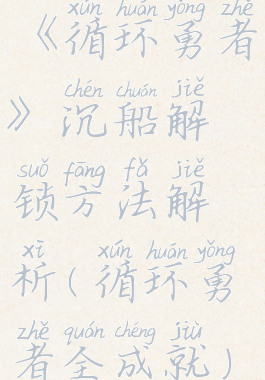 xún huán yǒng zhě
《循环勇者
chén chuán jiě
》沉船解
suǒ fāng fǎ jiě
锁方法解
xī xún huán yǒng
析(循环勇
zhě quán chéng jiù
者全成就)